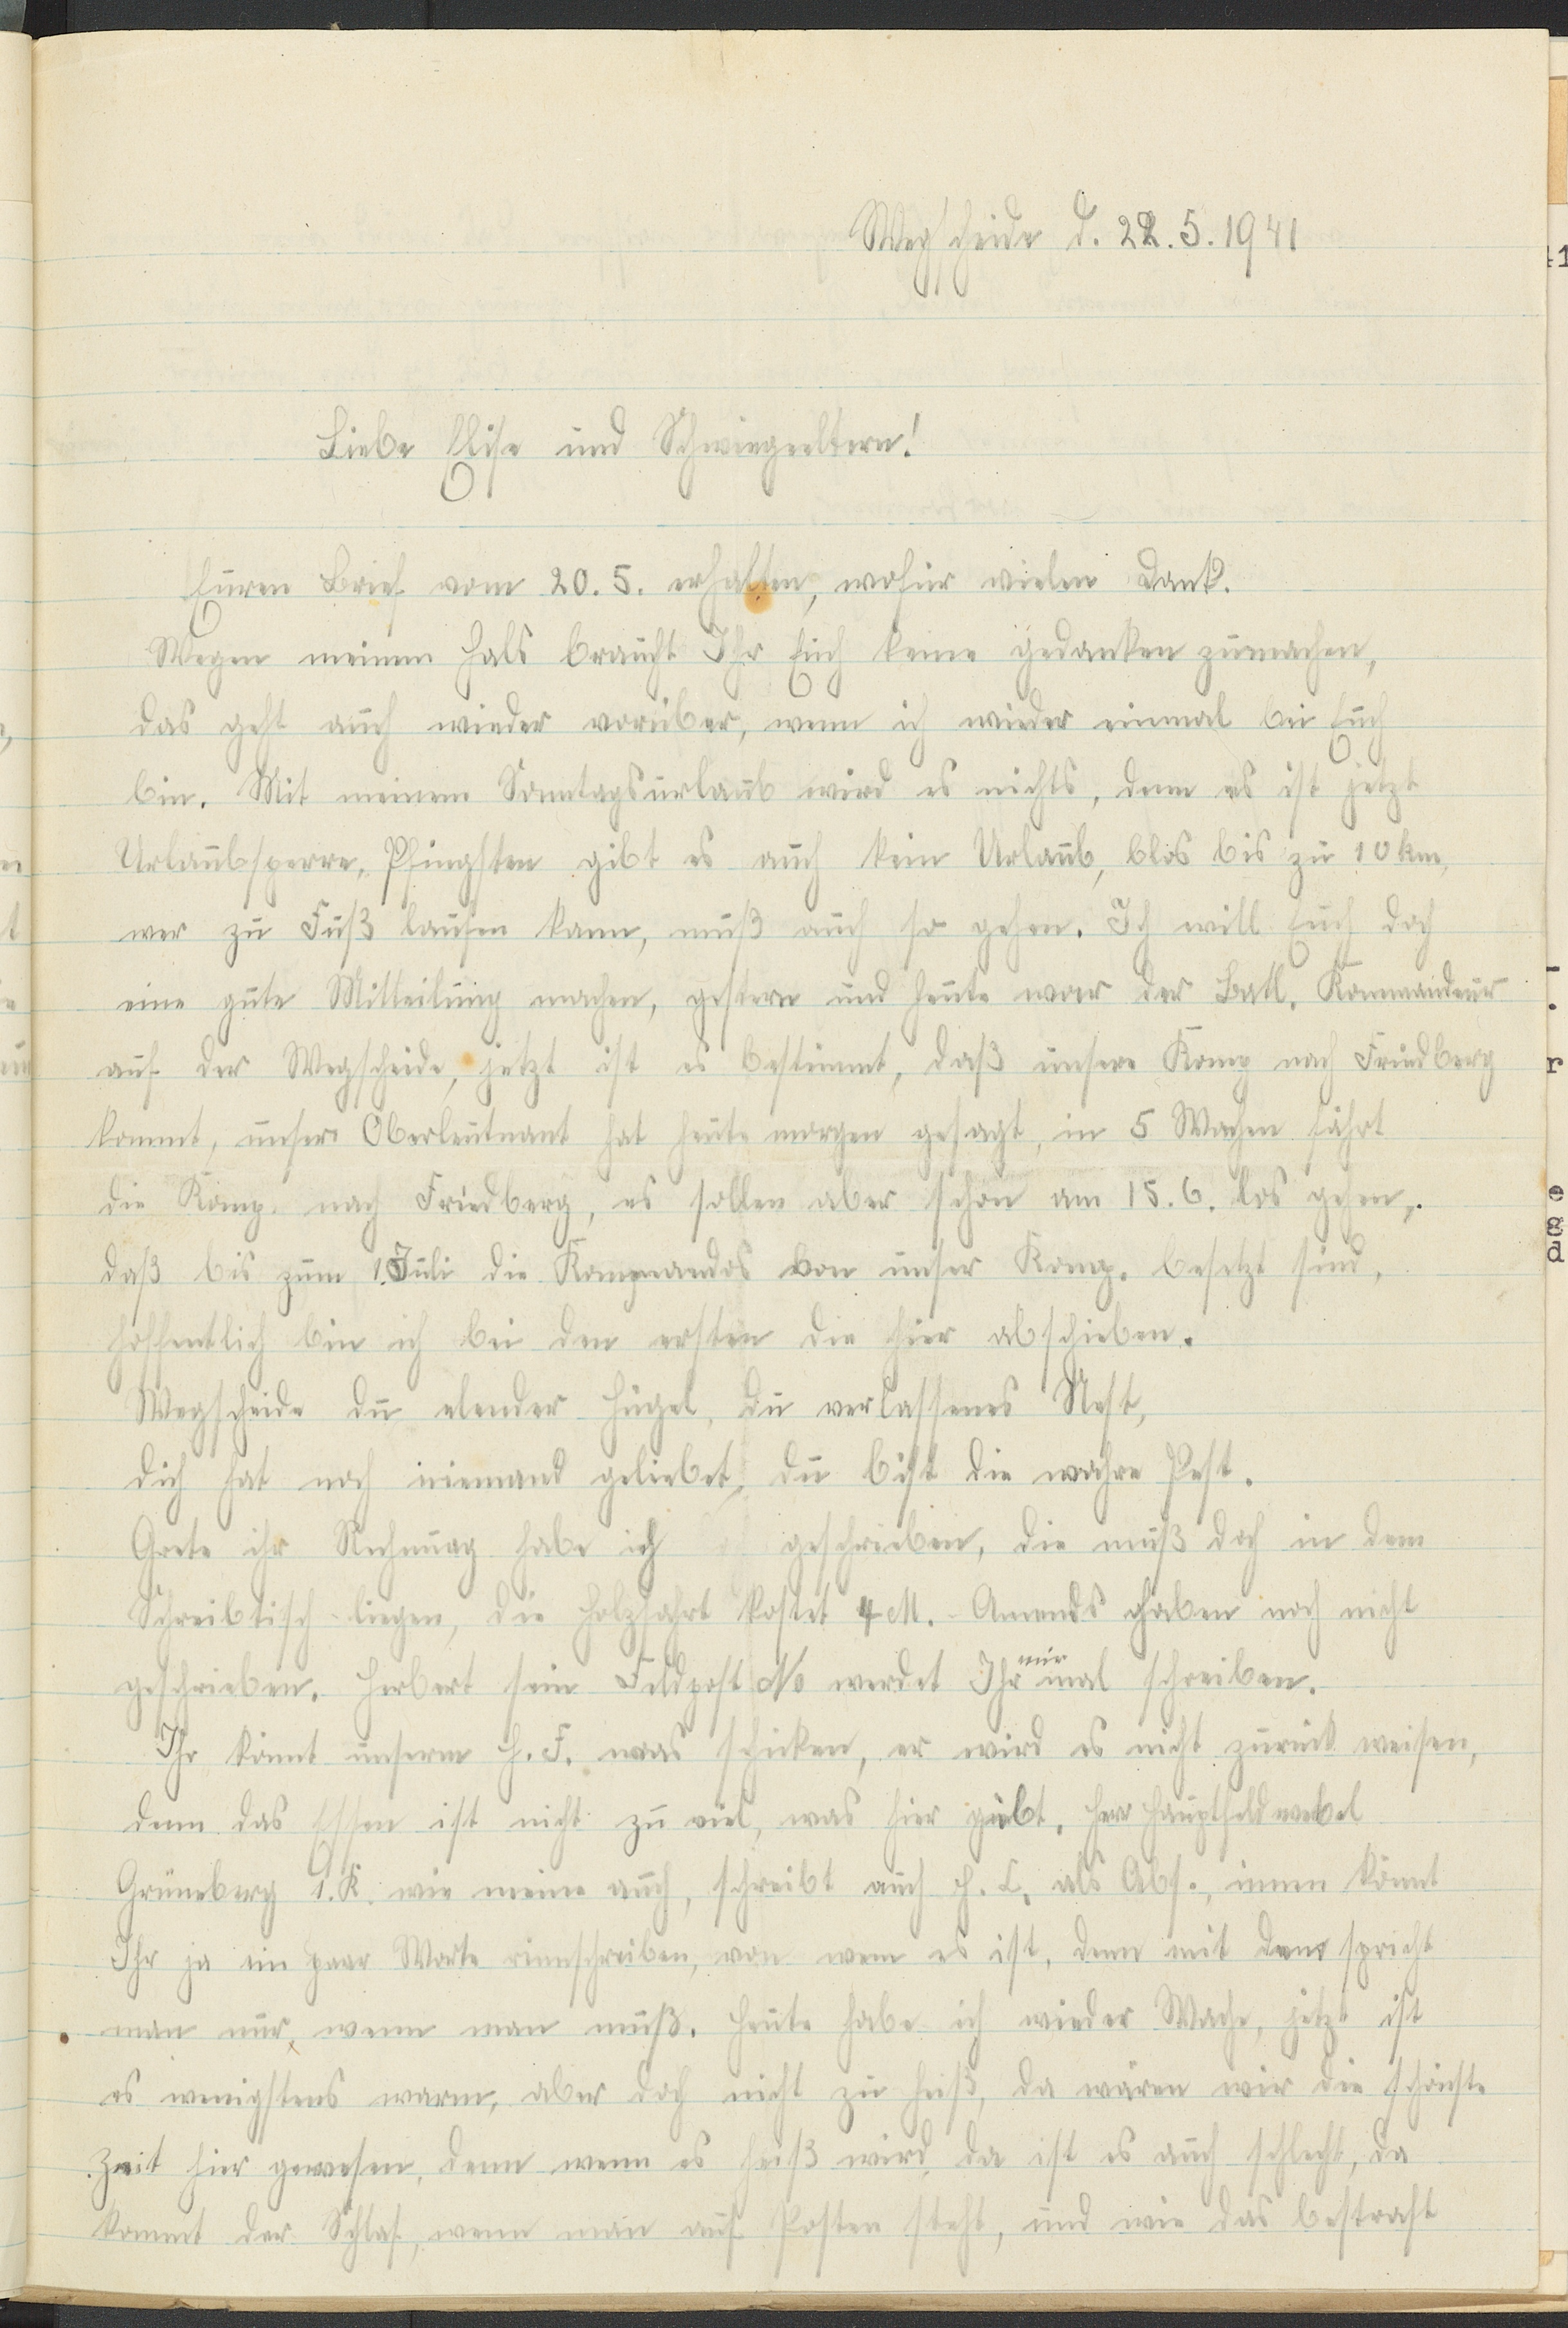 Wegscheide d. 22.5.1941
Liebe Elise und Schwiegereltern!
Euren Brief vom 20.5. erhalten, wofür vielen Dank.
Wegen meinem Hals braucht Ihr Euch keine Gedanken zumachen,
das geht auch wieder vorüber, wenn ich wieder einmal bei Euch
bin. Mit meinem Sonntagsurlaub wird es nichts, denn es ist jetzt
Urlaubsperre, Pfingsten gibt es auch kein Urlaub, blos bis zu 10 km,
wer zu Fuß laufen kann, muß auch so gehen. Ich will Euch doch
eine gute Mitteilung machen, gestern und heute war der Batl. Kommandeur
auf der Wegscheide, jetzt ist es bestimmt, daß unsere Komp nach Friedberg
kommt, unser Oberleutnant hat heute morgen gesagt, in 5 Wochen fährt
die Komp. nach Friedberg, es sollen aber schon am 15.6. los gehen,
daß bis zum 1. Juli die Kommandos von unser Komp. besetzt sind,
hoffentlich bin ich bei den ersten die hier abschieben.
Wegscheide du elender Hügel, du verlassenes Nest,
dich hat noch niemand geliebet, du bist die wahre Pest.
Grete ihr Rechnung habe ich geschrieben, die muß doch in dem
Schreibtisch liegen, die Holzfahrt kostet 4 M. Amends haben noch nicht
geschrieben. Herbert sein Feldpost No werdet Ihr mir mal schreiben.
Ihr könnt unserm H. F. was schicken, er wird es nicht zurück weisen,
denn das Essen ist nicht zu viel, was hier giebt, Herr Hauptfeldwebel
Grüneberg 1. K. wie meine auch, schreibt auch H. L. als Abs., innen könnt
Ihr ja ein paar Worte reinschreiben, von wem es ist, denn mit dem spricht
man nur, wenn man muß. Heute habe ich wieder Wache, jetzt ist
es wenigstens warm, aber doch nicht zu heiß, da wären wir die schönste
Zeit hier gewesen, denn wenn es heiß wird, da ist es auch schlecht, da
kommt der Schlaf, wenn man auf Posten steht, und wie das bestraft